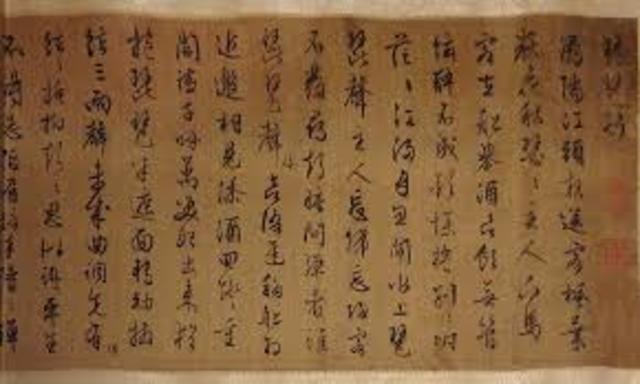 琵琶行
潯陽江頭夜送客楓葉
荻花秋瑟〻主人下馬
客在船舉酒欲飲無管
絃醉不成歡慘將別〻時
茫〻江浸月忽聞水上琵
琶聲主人忘歸客
不發尋聲暗問彈者誰
琵琶聲欲語遲移船相
近邀相見添酒回燈重
開讌千呼萬喚始出來猶
抱琵琶半遮面轉軸撥
絃三兩聲未成曲調先有
掩抑聲〻思似訴平生
不得志低眉信手續〻彈